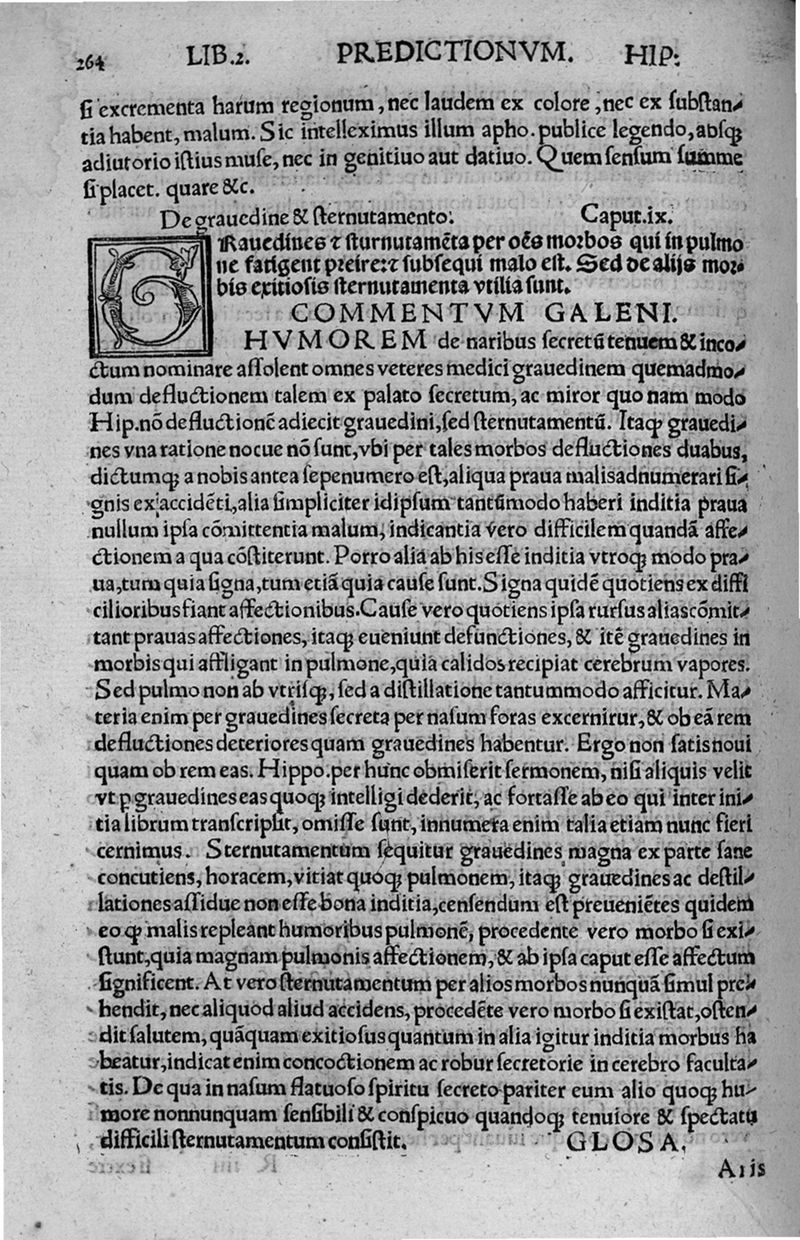 264 LIB.2. PREDICTIONVM. HIP:
ſi excrementa harum regionum, nec laudem ex colore, nec ex ſubſtan-
tia habent, malum. Sic intelleximus illum apho. publice legendo, abſqꝫ
adiutorio iſtius muſe, nec in genitiuo aut datiuo. Quem ſenſum ſumme
ſi placet. quare &c.
De grauedine & ſternutamento. Caput.ix.
GRauedines ⁊ ſturnutamẽta per oẽs morbos qui in pulmo
ne fatigent preire: ⁊ ſubſequi malo eſt. Sed de alijs mor-
bis exitioſis ſternutamenta vtilia ſunt.
COMMENTVM GALENI.
HVMOREM de naribus ſecretũ tenuem & inco-
ctum nominare aſſolent omnes veteres medici grauedinem quemadmo-
dum defluctionem talem ex palato ſecretum, ac miror quo nam modo
Hip. nõ defluctionẽ adiecit grauedini, ſed ſternutamentũ. Itaqꝫ grauedi-
nes vna ratione nocue nõ ſunt, vbi per tales morbos defluctiones duabus,
dictumqꝫ a nobis antea ſepenumero eſt, aliqua praua malis adnumerari ſi-
gnis ex accidẽti, alia ſimpliciter idipſum tantũmodo haberi inditia praua
nullum ipſa cõmittentia malum, indicantia vero difficilem quandã affe-
ctionem a qua cõſtiterunt. Porro alia ab his eſſe inditia vtroqꝫ modo pra-
ua, tum quia ſigna, tum etiã quia cauſe ſunt. Signa quidẽ quotiens ex diffi
cilioribus fiant affectionibus. Cauſe vero quotiens ipſa rurſus alias cõmit-
tant prauas affectiones, itaqꝫ eueniunt defunctiones, & itẽ grauedines in
morbis qui affligant in pulmone, quia calidos recipiat cerebrum vapores.
Sed pulmo non ab vtriſqꝫ, ſed a diſtillatione tantummodo afficitur. Ma-
teria enim per grauedines ſecreta per naſum foras excernirur, & ob eã rem
defluctiones deteriores quam grauedines habentur. Ergo non ſatis noui
quam ob rem eas. Hippo. per hunc obmiſerit ſermonem, niſi aliquis velit
vt ꝓ grauedines eas quoqꝫ intelligi dederit, ac fortaſſe ab eo qui inter ini-
tia librum tranſcripſit, omiſſe ſunt, innumera enim talia etiam nunc fieri
cernimus. Sternutamentum ſequitur grauedines magna ex parte ſane
concutiens, horacem, vitiat quoqꝫ pulmonem, itaqꝫ grauedines ac deſtil-
lationes aſſidue non eſſe bona inditia, cenſendum eſt preueniẽtes quidem
eo qꝫ malis repleant humoribus pulmonẽ, procedente vero morbo ſi exi-
ſtunt, quia magnam pulmonis affectionem, & ab ipſa caput eſſe affectum
ſignificent. At vero ſternutamentum per alios morbos nunquã ſimul pre-
hendit, nec aliquod aliud accidens, procedẽte vero morbo ſi exiſtat, oſten-
dit ſalutem, quãquam exitioſus quantum in alia igitur inditia morbus ha
beatur, indicat enim concoctionem ac robur ſecretorie in cerebro faculta-
tis. De qua in naſum flatuoſo ſpiritu ſecreto pariter eum alio quoqꝫ hu-
more nonnunquam ſenſibili & conſpicuo quandoqꝫ tenuiore & ſpectatu
difficili ſternutamentum conſiſtit. GLOSA.
Aris